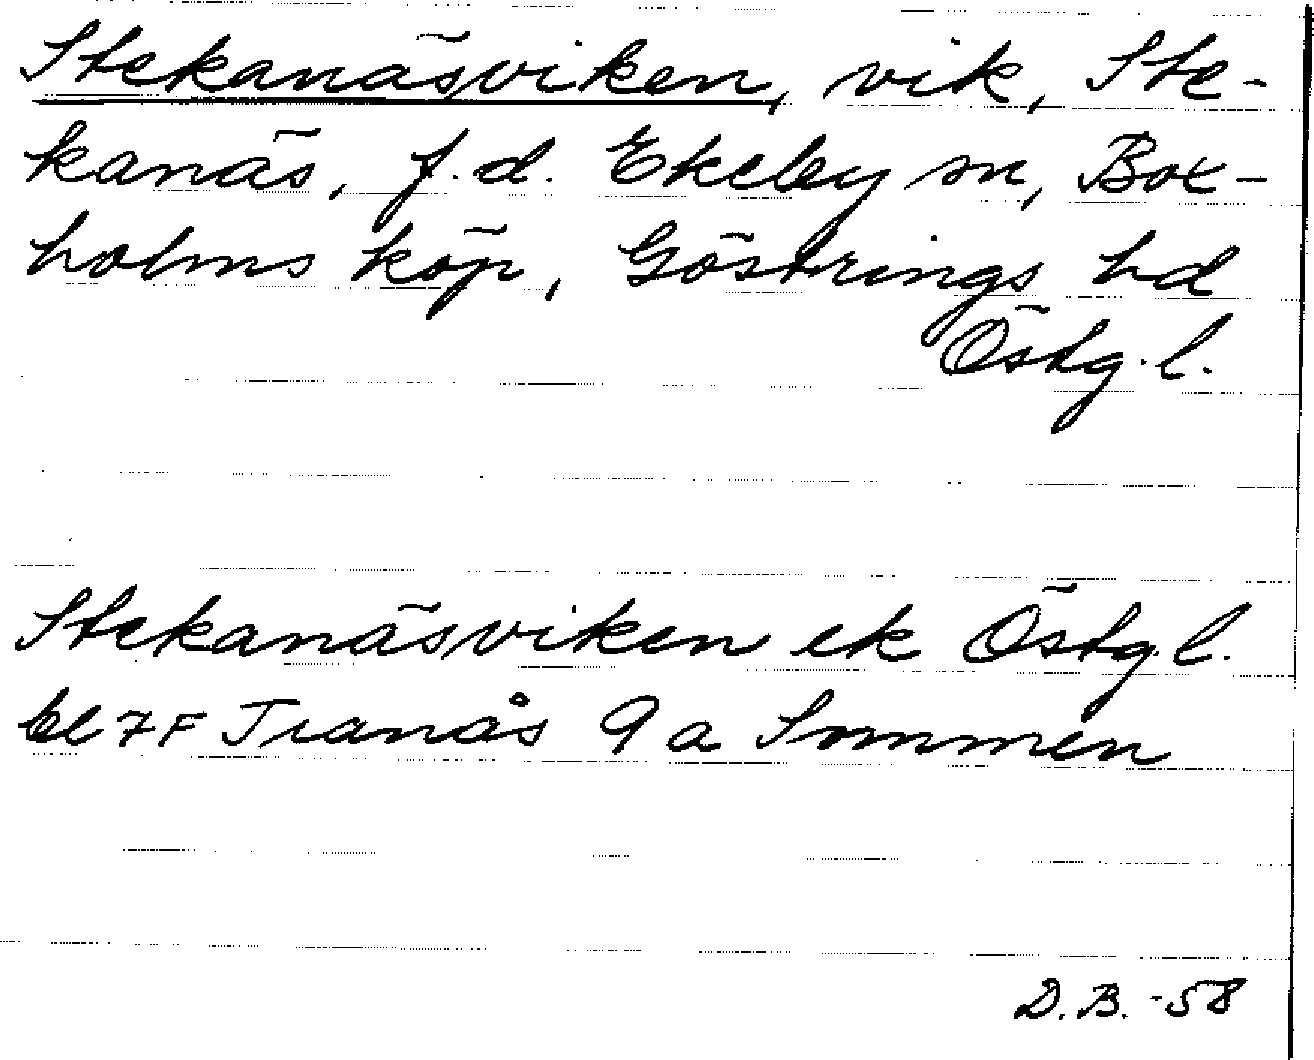 Stekanäsviken, vik, Ste-
kanäs, f.d. Ekeby sn, Box-
holms köp, Göstrings hd
Östg.l.
Stekanäsviken ek Östg.l.
bl 7F Tranås 9a Sommen
D.B. -58